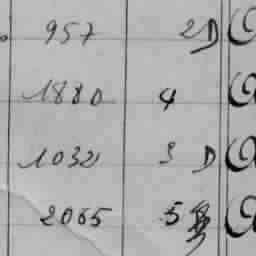 957 2D
1880 4
1032 3 D
2065 5